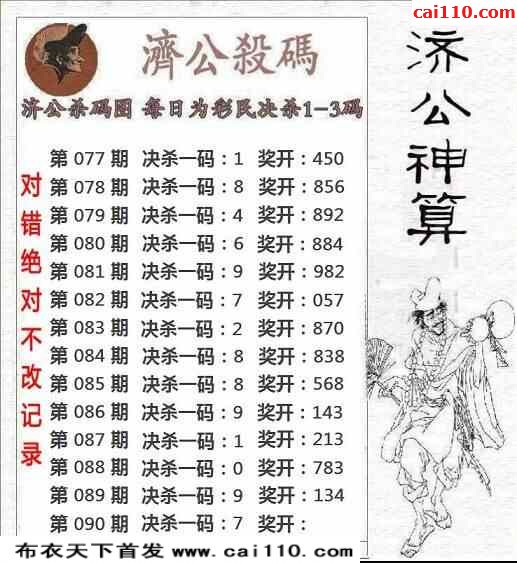 cai110.com
濟公殺碼
济公杀码图 每日为彩民决杀1-3码
第 077 期 决杀一码:1 奖开:450
第 078 期 决杀一码:8 奖开:856
第 079 期 决杀一码:4 奖开:892
第 080 期 决杀一码:6 奖开:884
第 081 期 决杀一码:9 奖开:982
第 082 期 决杀一码:7 奖开:057
第 083 期 决杀一码:2 奖开:870
第 084 期 决杀一码:8 奖开:838
第 085 期 决杀一码:8 奖开:568
第 086 期 决杀一码:9 奖开:143
第 087 期 决杀一码:1 奖开:213
第 088 期 决杀一码:0 奖开:783
第 089 期 决杀一码:9 奖开:134
第 090 期 决杀一码:7 奖开:
对错绝对不改记录
济公神算
布衣天下首发 www.cai110.com